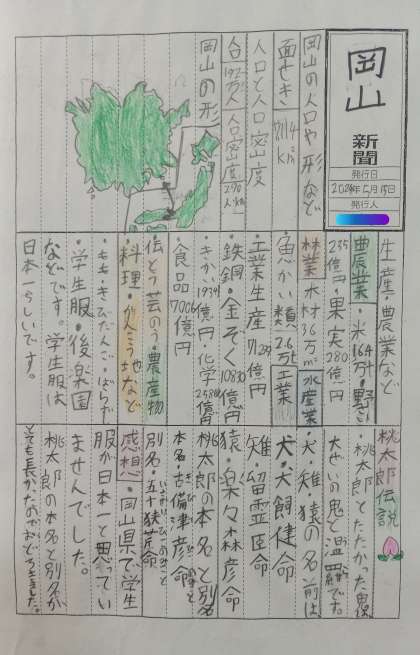 岡山
新聞
発行日
発行人
岡山の人口や形など
面せき
人口と人口密度
人口密度
岡山の形
生産・農業など
農業・米164万t・野さい
235億円果実280億円
林業木材36万㎥水産業
魚かい類2.6万t工業
工業生産
鉄鋼・金ぞく10830億円
きかい19341億円・化学
食品7006億円
伝とう芸のう・農産物
料理・かんこう地など
・もも・きびだんご・ばらずし
・学生服・後楽園
などです。学生服は
日本一らしいです。
桃太郎伝説
・桃太郎とたたかった鬼は、
大ぜいの鬼と温羅です。
・犬・雉・猿の名前は、
犬・犬飼健命
雉・留霊臣命
猿・楽々森彦命
桃太郎の本名と別名
本名・吉備津彦命
別名・五十狭芹命
感想・岡山県で学生
服が日本一と思ってい
ませんでした。
桃太郎の本名と別名が
とても長かったのでおどろきました。